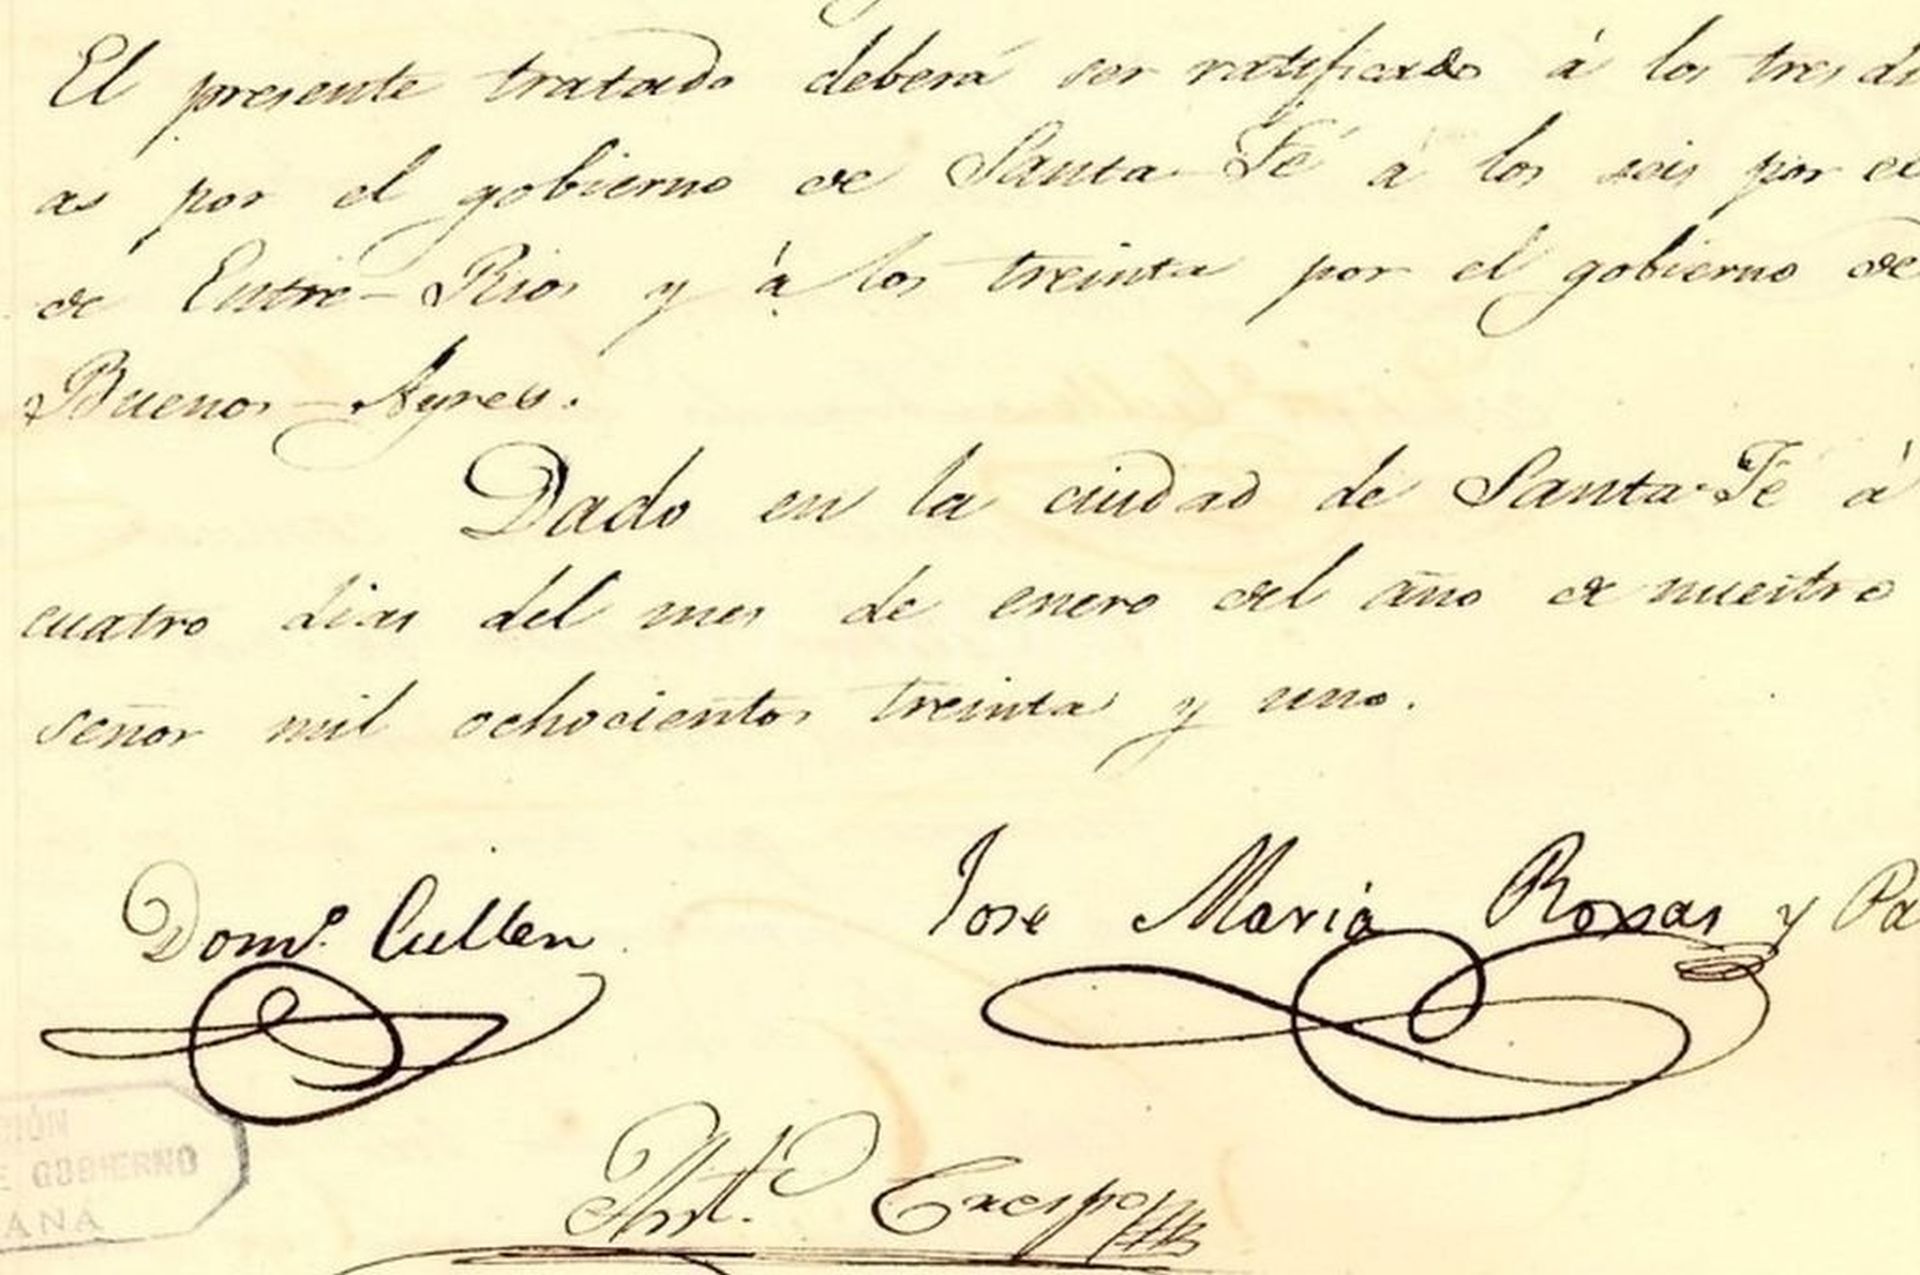 El presente tratado deberá ser ratificado á los tres di
as por el gobierno de Santa Fé á los seis por el
de Entre-Rios y á los treinta por el gobierno de
Buenos-Ayres.
Dado en la ciudad de Santa-Fé á
cuatro dias del mes de enero del año de nuestro
señor mil ochocientos treinta y uno.
Domº. Cullen
Jose Mariá Roxas y Pa
Antº. Crespo
CIÓN
E GOBIERNO
ANA